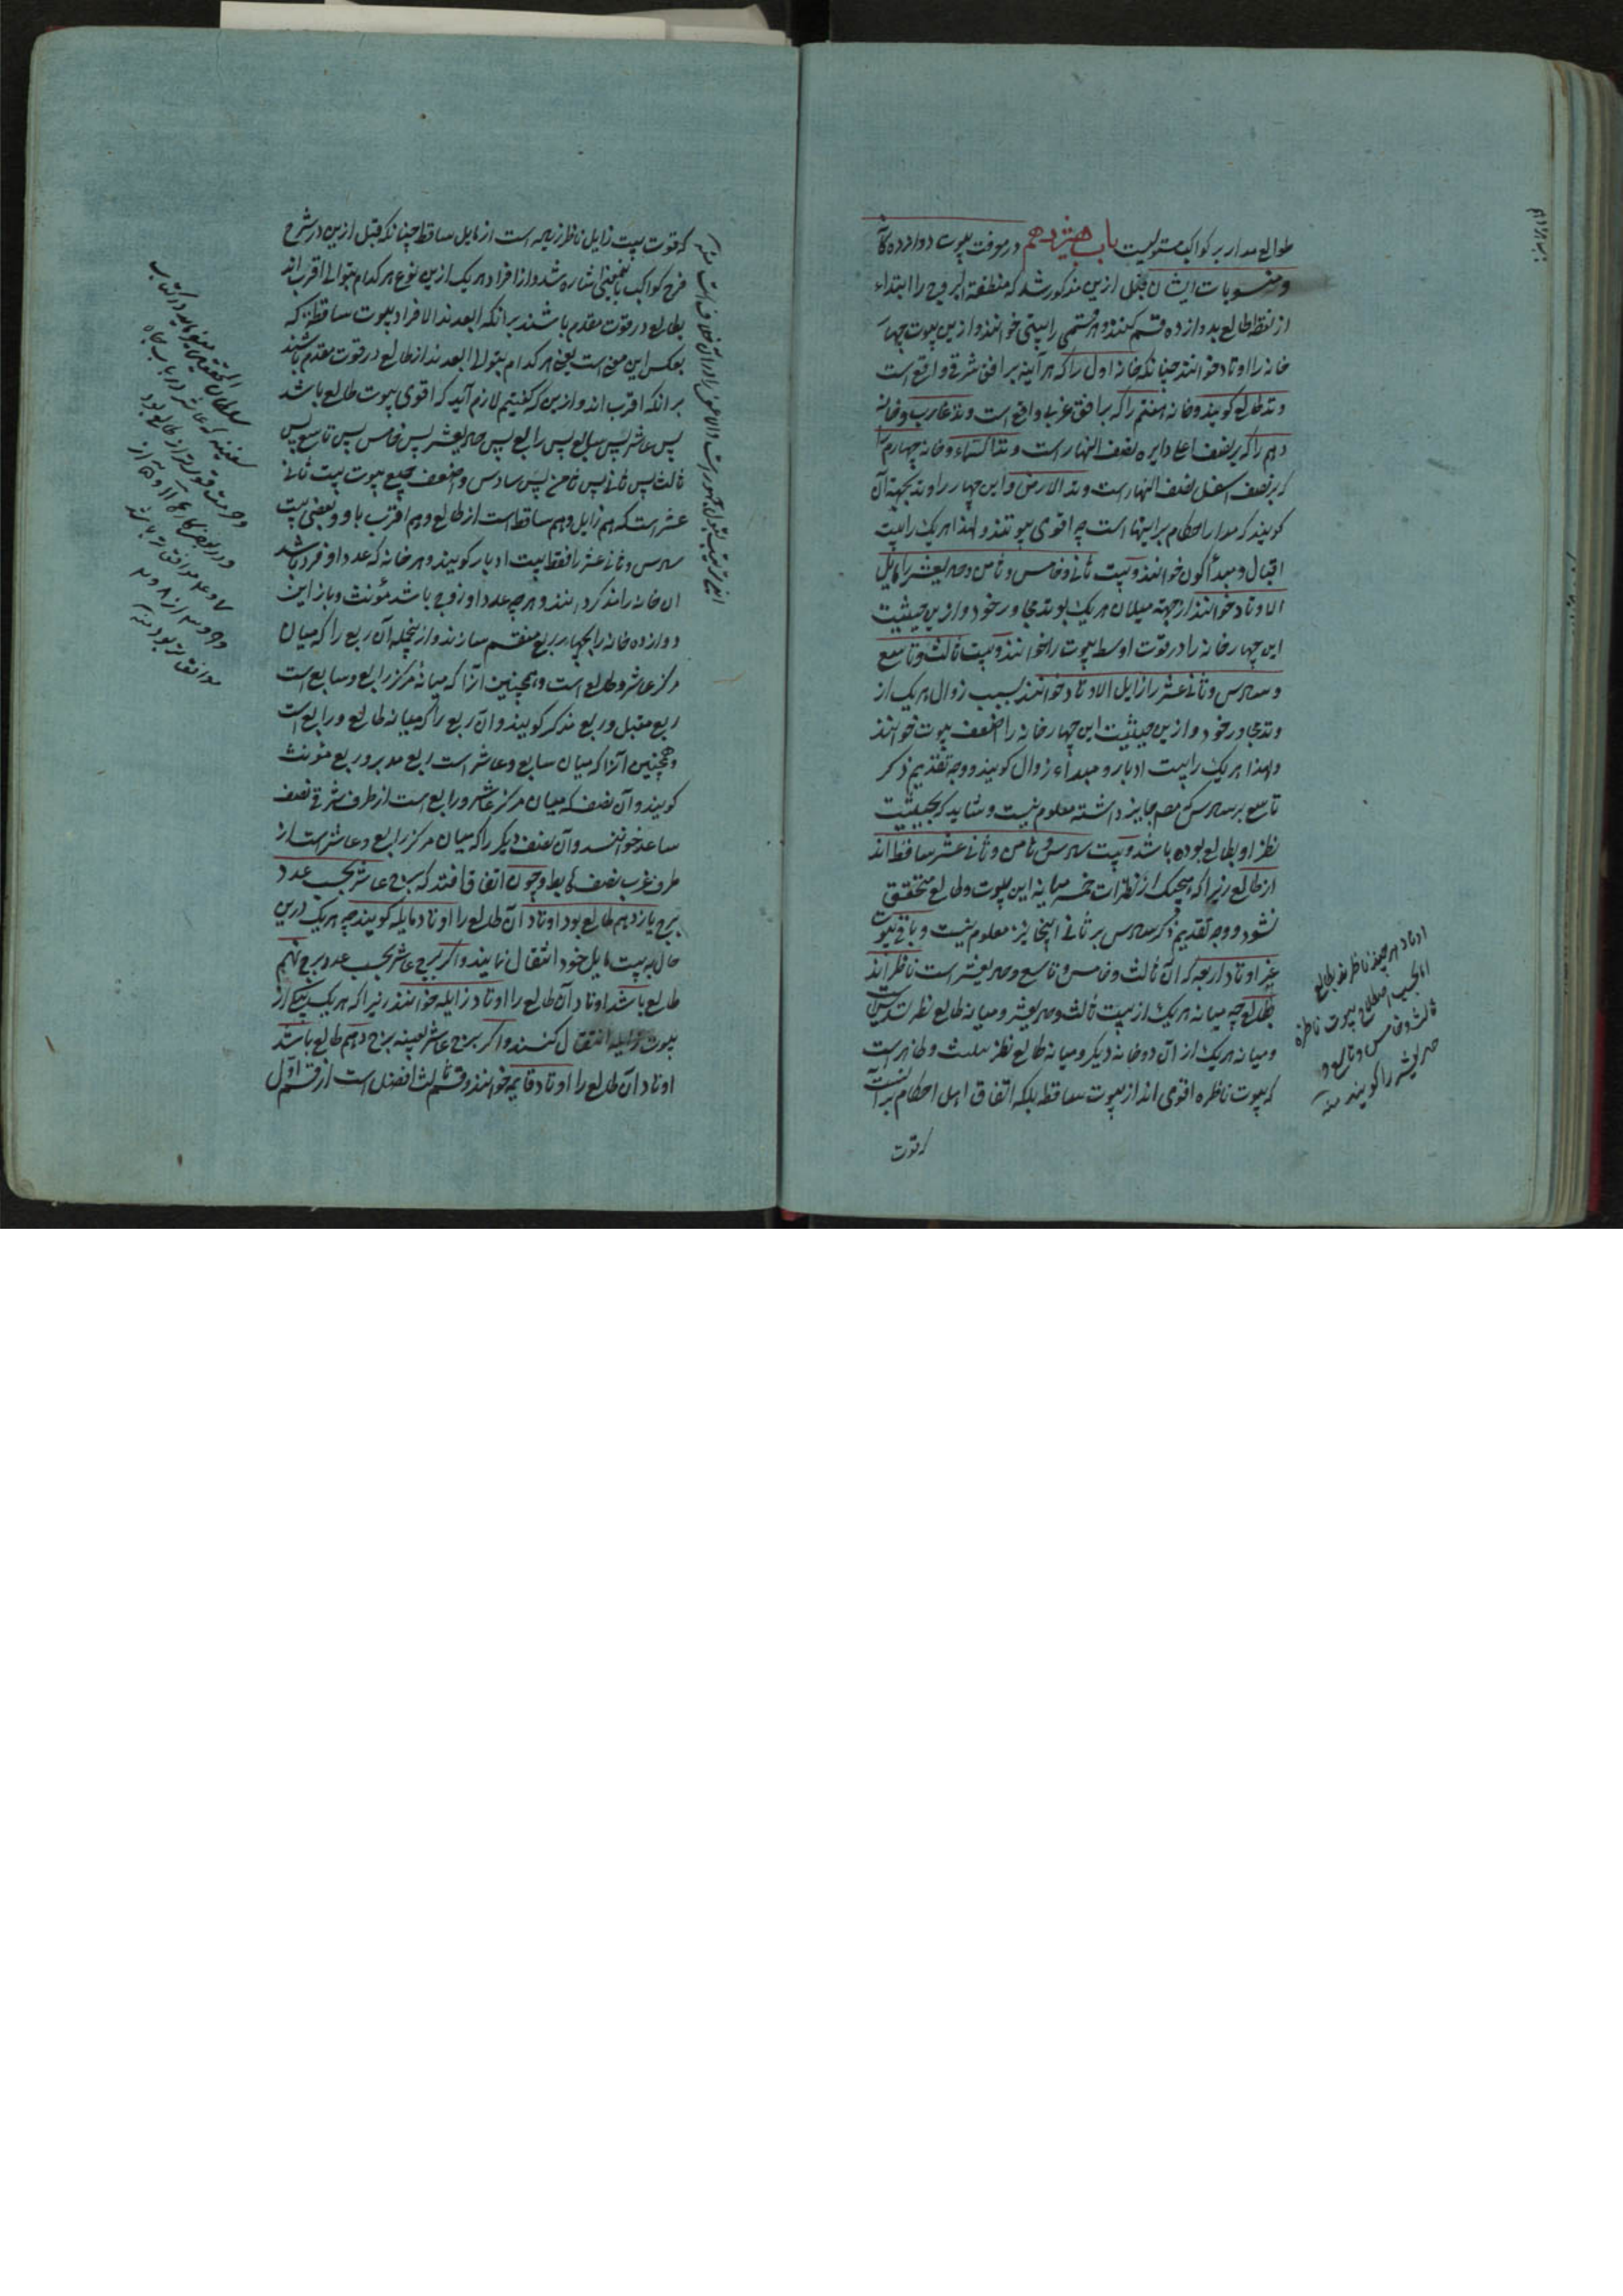 طوالع مدار بر کواکب مستولیست باب هیزدهم در معرفت بیوت دوازده‌گانه
و منسوبات ایشان قبل ازین مذکور شد که منطقة البروج را ابتداء
از نقطه طالع بدوازده قسم کنند و هر قسمی را بیتی خوانند و ازین بیوت چهار
خانه را اوتاد خوانند چنانکه خانه اول را که هر آینه بر افق شرقی واقع است
وتد طالع گویند و خانه هفتم را که بر افق غربی واقع است وتد غارب و خانه
دهم را که بر نصف اعلی دایره نصف النهار است وتد السماء و خانه چهارم را
که بر نصف اسفل نصف النهار است وتد الارض و این چهار را وتد بجهة آن
گویند که مدار احکام بر اینها است چه اقوی بیوتند و لهذا هر یک را بیت
اقبال و مبدأ کون خوانند و بیت ثانی و خامس و ثامن و حادیعشر را مایل
الاوتاد خوانند از جهة میلان هر یک بوتد مجاور خود و ازین حیثیت
این چهار خانه را در قوت اوسط بیوت را خوانند و بیت ثالث و تاسع
و سادس و ثانی عشر را زایل الاوتاد خوانند بسبب زوال هر یک از
وتد مجاور خود و ازین حیثیت این چهار خانه را اضعف بیوت خوانند
و لهذا هر یک را بیت ادبار و مبداء زوال گویند و وجه تقدیم ذکر
تاسع بر سادس که مصـ جایز داشته معلوم نیست و شاید که بحیثیت
نظر او بطالع بوده باشد و بیت سادس و ثامن و ثانی عشر ساقط اند
از طالع زیرا که هیچیک از نظرات خمسه میانه این بیوت و طالع متحقق
نشود و وجه تقدیم ذکر سادس بر ثانی اینجا نیز معلوم نیست و باقی بیوت
غیر اوتاد اربعه که آن ثالث و خامس و تاسع و حادیعشر است ناظر اند
بطالع چه میانه هر یک از بیت ثالث و حادیعشر و میانه طالع نظر تسدیس است
و میانه هر یک از آن دو خانه دیگر و میانه طالع نظر تثلیث و ظاهر است
که بیوت ناظره اقوی اند از بیوت ساقطه بلکه اتفاق اهل احکام بر آنست
که قوت
اوتاد هر چند ناظرند بطالع
اما بحسب اصطلاح بیوت ناظره
ثالث و خامس و تاسع و
حادیعشر را گویند منه
که قوت بیت زایل ناظر زیاده است از مایل ساقط چنانکه قبل ازین در شرح
فرح کواکب باینمعنی اشاره شد و از افراد هر یک ازین نوع هر کدام بتوالی اقرب اند
بطالع در قوت مقدم باشند بر آنکه ابعدند الا افراد بیوت ساقطه که
بعکس این معنی است یعنی هر کدام بتوالی ابعدند از طالع در قوت مقدم باشند
بر آنکه اقرب اند و ازین که گفتیم لازم آید که اقوی بیوت طالع باشد
پس عاشر پس سابع پس رابع پس حادیعشر پس خامس پس تاسع پس
ثالث پس ثانی پس ثامن پس سادس و اضعف جمیع بیوت بیت ثانی
عشر است که هم زایل و هم ساقط است از طالع و هم اقرب باو و بعضی بیت
سادس و ثانی عشر را فقط بیت ادبار گویند و هر خانه که عدد او فرد باشد
آن خانه را مذکر دانند و هر چه عدد او زوج باشد مؤنث و باز این
دوازده خانه را بچهار ربع منقسم سازند و از ینجمله آن ربع را که میان
مرکز عاشر و طالع است و همچنین آنرا که میانه مرکز رابع و سابع است
ربع مقبل و ربع مذکر گویند و آن ربع را که میانه طالع و رابع است
و همچنین آنرا که میان سابع و عاشر است ربع مدبر و ربع مؤنث
گویند و آن نصف که میان مرکز عاشر و رابع است از طرف شرقی نصف
صاعد خوانند و آن نصف دیگر را که میان مرکز رابع و عاشر است از
طرف غرب نصف هابط و چون اتفاق افتد که برج عاشر بحسب عدد
برج یازدهم طالع بود اوتاد آن طالع را اوتاد مایله گویند چه هر یک درین
حال به بیت مایل خود انتقال نمایند و اگر برج عاشر بحسب عدد برج نهم
طالع باشد اوتاد آن طالع را اوتاد زایله خوانند زیرا که هر یک به یکی از
بیوت زایله انتقال کنند و اگر برج عاشر بعینه برج دهم طالع باشد
اوتاد آن طالع را اوتاد قایمه خوانند و قسم ثالث افضل است از قسم اول
سلطان المحققین میفرماید در کتاب
سفینه که عاشر در باب جاه